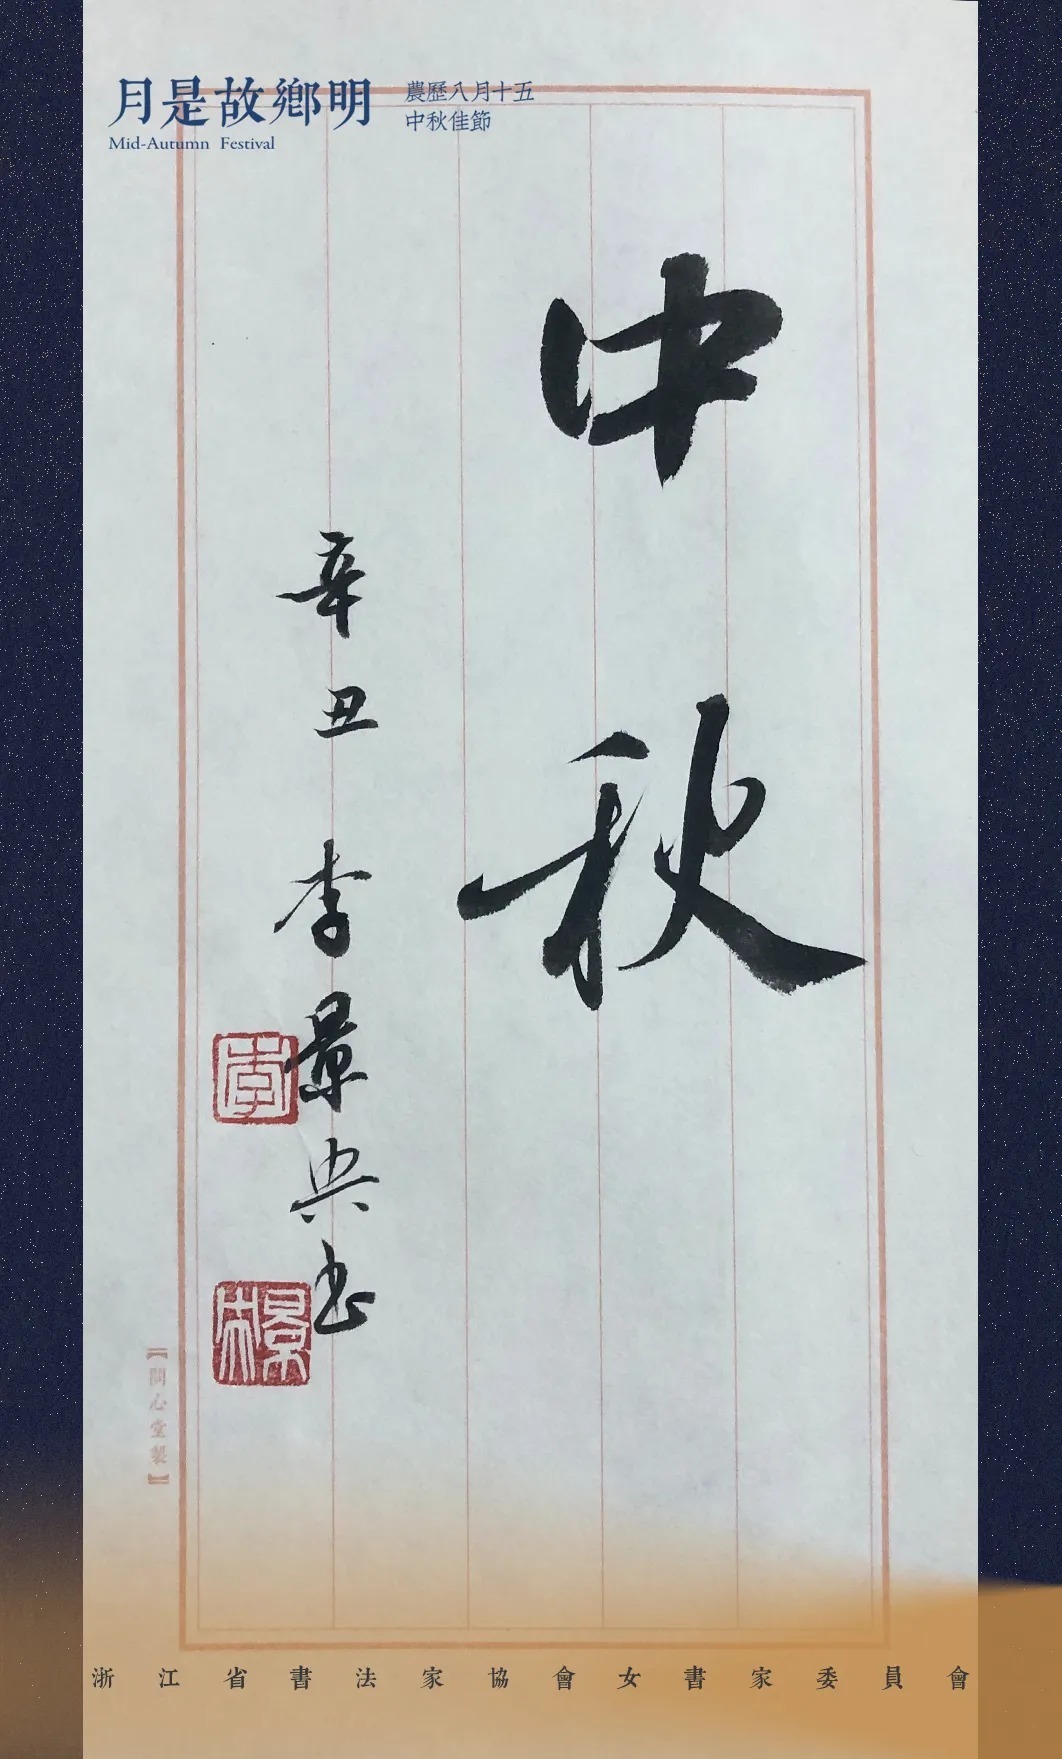 月是故鄉明
Mid-Autumn Festival
農歷八月十五
中秋佳節
中秋
辛丑 李景央书
李
景
【問心堂製】
浙江省書法家協會女書家委員會